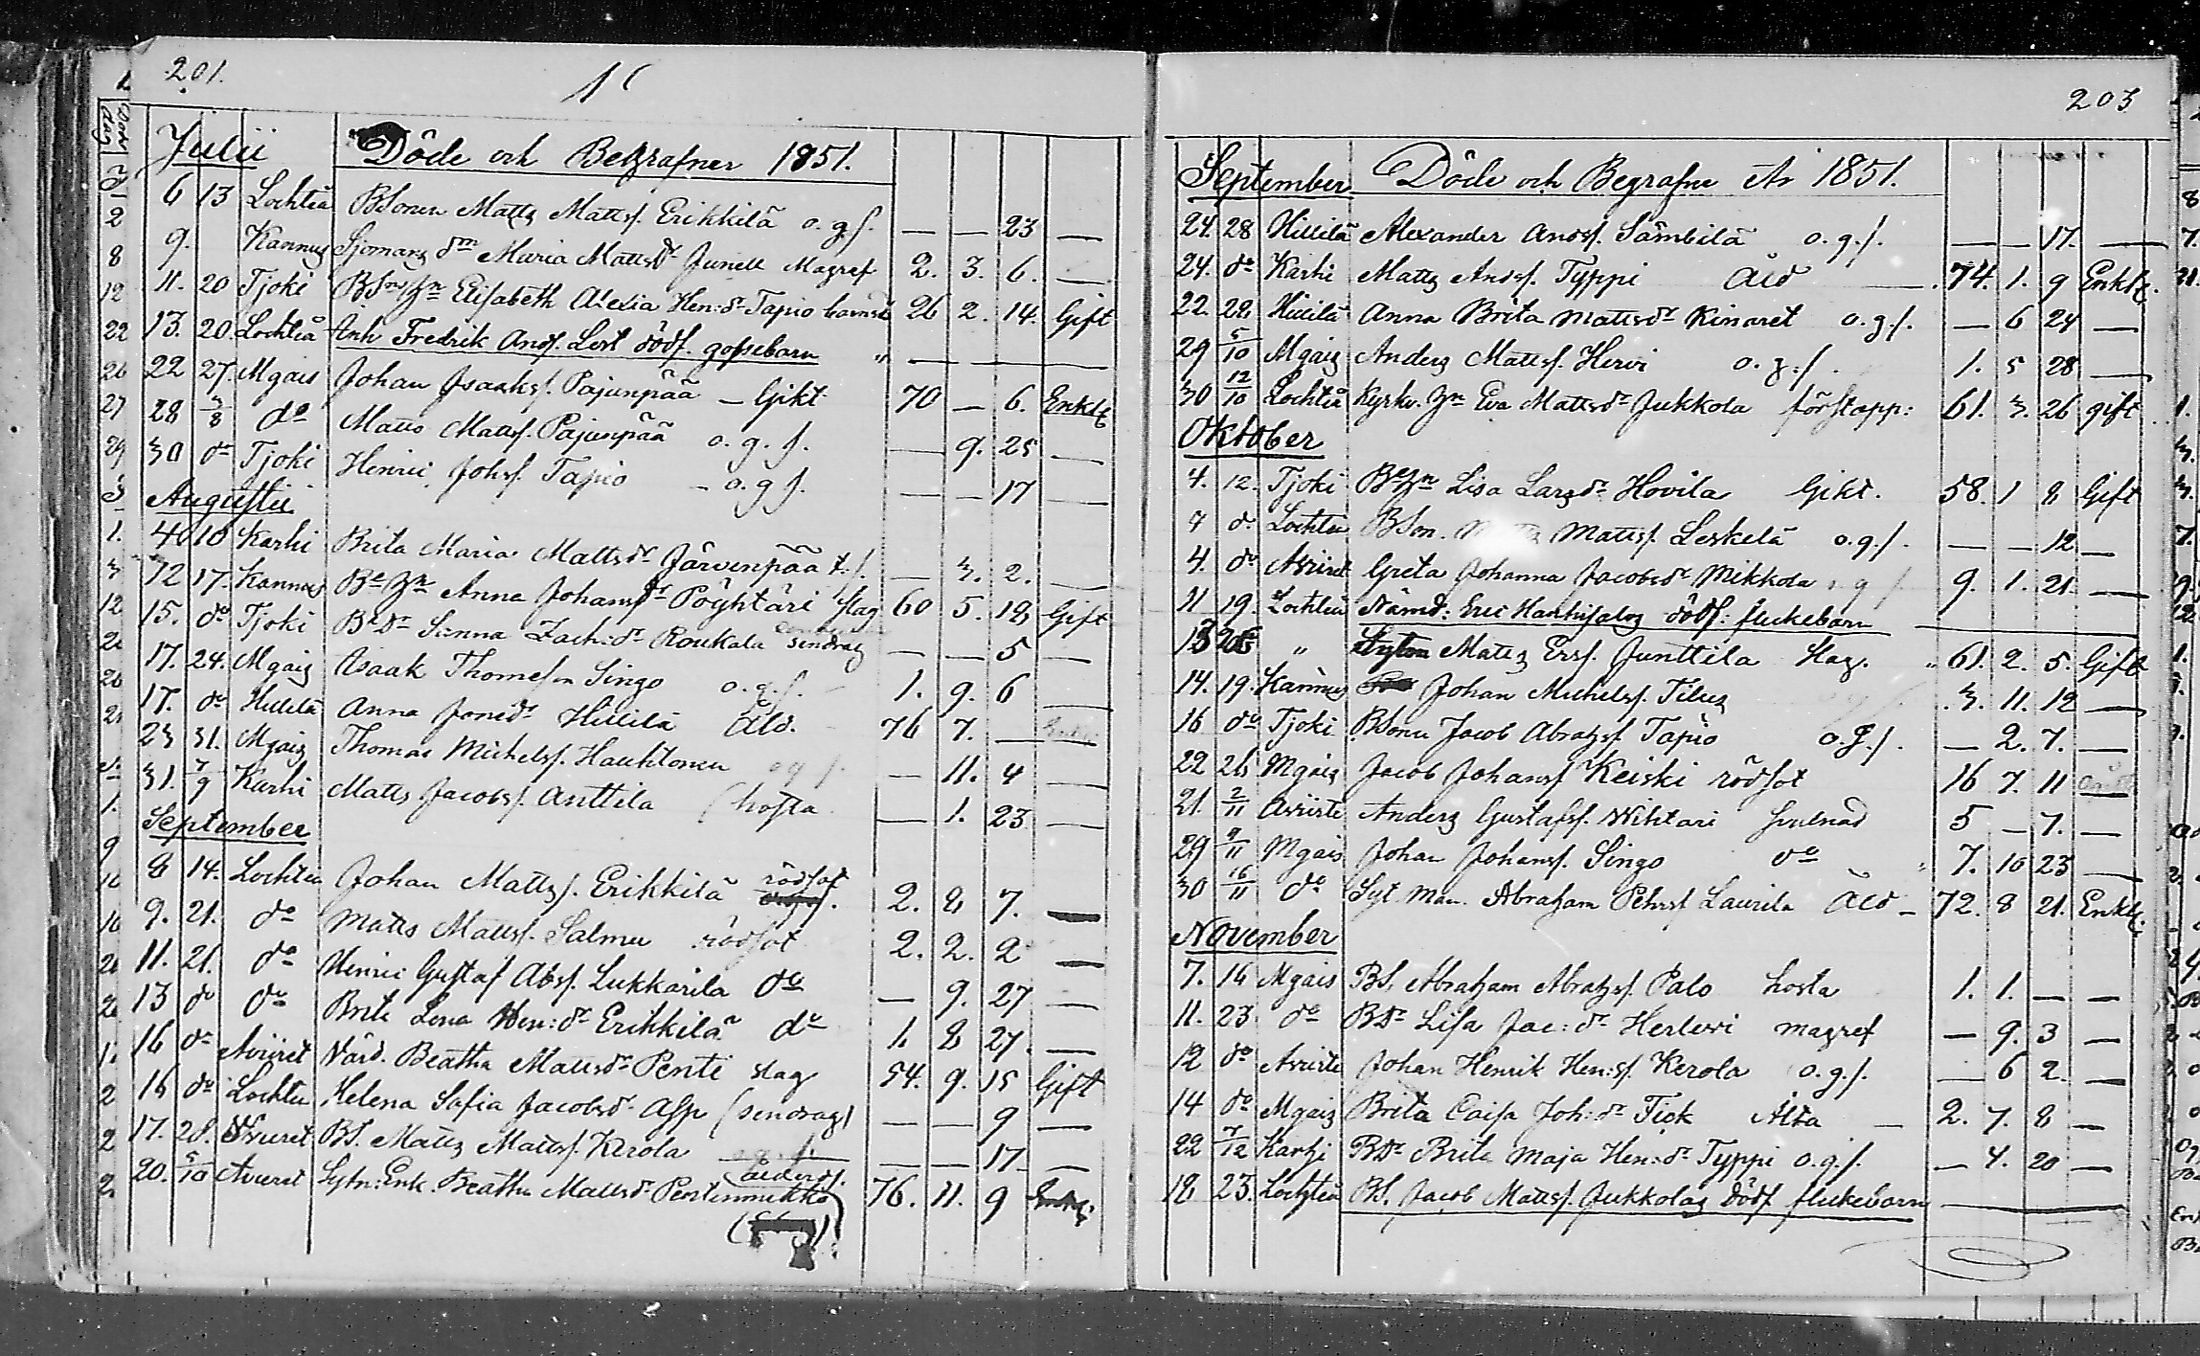 201.
Julii Döde och Begrafner 1851.
6 13 Lochteå BSonen Matts Mattsf. Erikkilä o.g.f. — — 23 —
9. Kannus Sjomans dm Maria Mattsdr Junell Magref 2. 3. 6. —
11. 20 Tjoki Elisabeth Alexia Hen:dr Tapio barnsä 26 2. 14. Gift
13. 20. Lochteå Fredrik Andf. Lert dödf. gossebarn " —
22 27. Mgais Johan Isaaksf. Pajunpää — Gikt 70 — 6. Enkl
28 3/8 do Matts Mattsf. Pajunpää o.g.f. — 9. 25 —
30 do Tjoki Henric Johsf. Tapio - o.g.f. — — 17 —
Augustii
4 10 Karhi Brita Maria Mattsdr Järvenpää — 3. 2. —
12 17. Kannus Anna Johansdr Pöyhtäri slag 60 5. 18 Gift
15. do Tjoki Sanna Zach:dr Roukala sendrag — — 5 —
17. 24. Mgais Isaak Thomeson Singo o.g.f. 1. 9. 6 —
17. do Hillilä Anna Jonsdr Hillilä Åld. 76 7. —
23 31. Mgais Thomas Michelsf. Hauhtonen o g f. — 11. 4 —
31. 7/9 Karhi Matts Jacobsf. Anttila (hosta — 1. 23 —
September
8 14. Lochteå Johan Mattsf. Erikkilä rödsot 2. 8 7. —
9. 21. do Matts Mattsf. Salmu rödsot 2. 2. 2 —
11. 21. do Henric Gustaf Absf. Lukkarila do — 9. 27 —
13 do do Brita Lena Hen:dr Erikkilä do 1. 8 27. —
16 do Aviiret Beatha Mattsdr Penti slag 54. 9. 15 Gift
16 do Lochteå Helena Safia Jacobsdr Asp (sendrag) — — 9 —
17. 28. BS. Matts Mattsf. Kerola — — 17 —
20. 5/10 Aviret Sytn:Enk. Beatha Mattsdr Pentinmikko 76. 11. 9 Enkl
203
September Döde och Begrafne År 1851.
24. 28 Hillilä Alexander Andsf. Sämbilä o.g.f. — — 17. —
24. do Karhi Matts Andsf. Typpi Åld — 74. 1. 9 Enkl.
22. 28 Hillilä Anna Brita Mattsdr Kinaret o.g.f. — 6 24 —
29 5/10 Mgais Anders Mattsf. Hervi o.g.f. 1. 5 28 —
30 12/10 Lochteå Kyrkv. Eva Mattsdr Jukkola förstopp: 61. 3. 26 gift
Oktober
4. 12. Tjoki Lisa Larsdr Hovila Gikt. 58. 1 8 Gift
7 do Lochteå BSon. Mattsf. Leskelä o.g.f. — — 12 —
4. do Greta Johanna Jacobsdr Mikkola 9. 1. 21. —
11 19. Lochteå Nämd: Eric Hankisalos dödf: flickebarn —
13 26 " Matts Ersf. Junttila slag. 61. 2. 5. Gift
14. 19. Kannus Johan Michelsf. Tilus 3. 11. 12 —
16 do Tjoki BSonen Jacob Abrahsf. Tapio o.g.f. — 2. 7. —
22 26 Mgais Jacob Johansf Keiski rödsot 16 7. 11
21. 2/11 Anders Gustafsf. Wihtari svulnad 5 — 7. —
29 9/11 Mgais Johan Johansf. Singo do 7. 10 23 —
30 16/11 do Syt man Abraham Pehrsf Laurila Åld — 72. 8 21. Enkl.
November
7. 16 Mgais BS. Abraham Abrahsf. Palo hosta 1. 1. — —
11. 23 do BDr Lisa Jac:dr Herlevi magref — 9. 3 —
12 do Aviirte Johan Henrik Hen:sf. Kerola o.g.f. — 6 2. —
14 do Mgais Brita Caisa Joh:dr Tiok Älta — 2. 7. 8 —
22 7/12 Karhi BDr Brita Maja Hen:dr Typpi o.g.f. — 4. 20 —
18 23. Lochteå BS. Jacob Mattsf. Jukkolas Dödf flickebarn —